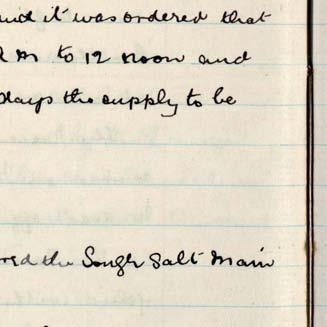 and it was ordered that
M to 12 noon and
days the supply to be
the Lough Salt Main